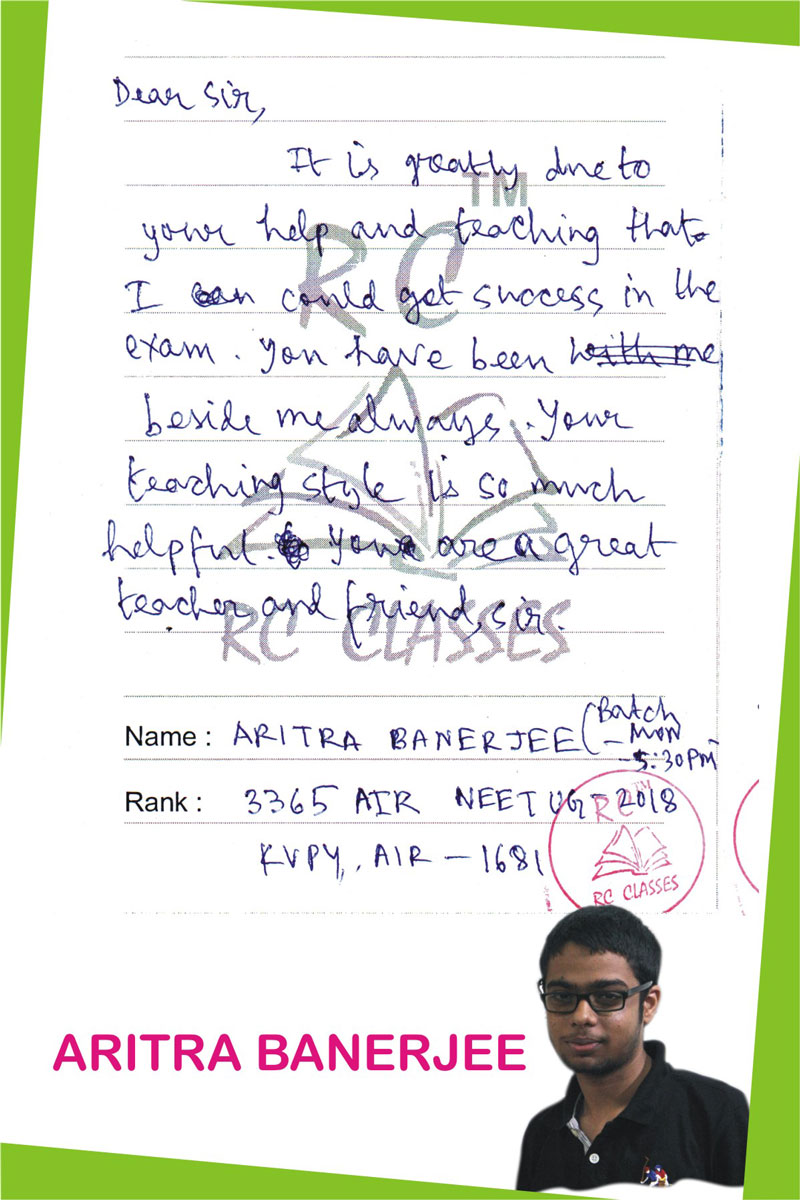 Dear Sir,
It is greatly due to
TM
RC
your help and teaching that
I can could get success in the
exam. You have been with me
beside me always. Your
teaching style is so much
helpful. You are a great
teacher and friend, sir.
RC CLASSES
Name : ARITRA BANERJEE (Batch
- Mon
- 5:30PM
Rank : 3365 AIR NEET UG - 2018
KVPY, AIR - 1681
RC TM
RC CLASSES
ARITRA BANERJEE